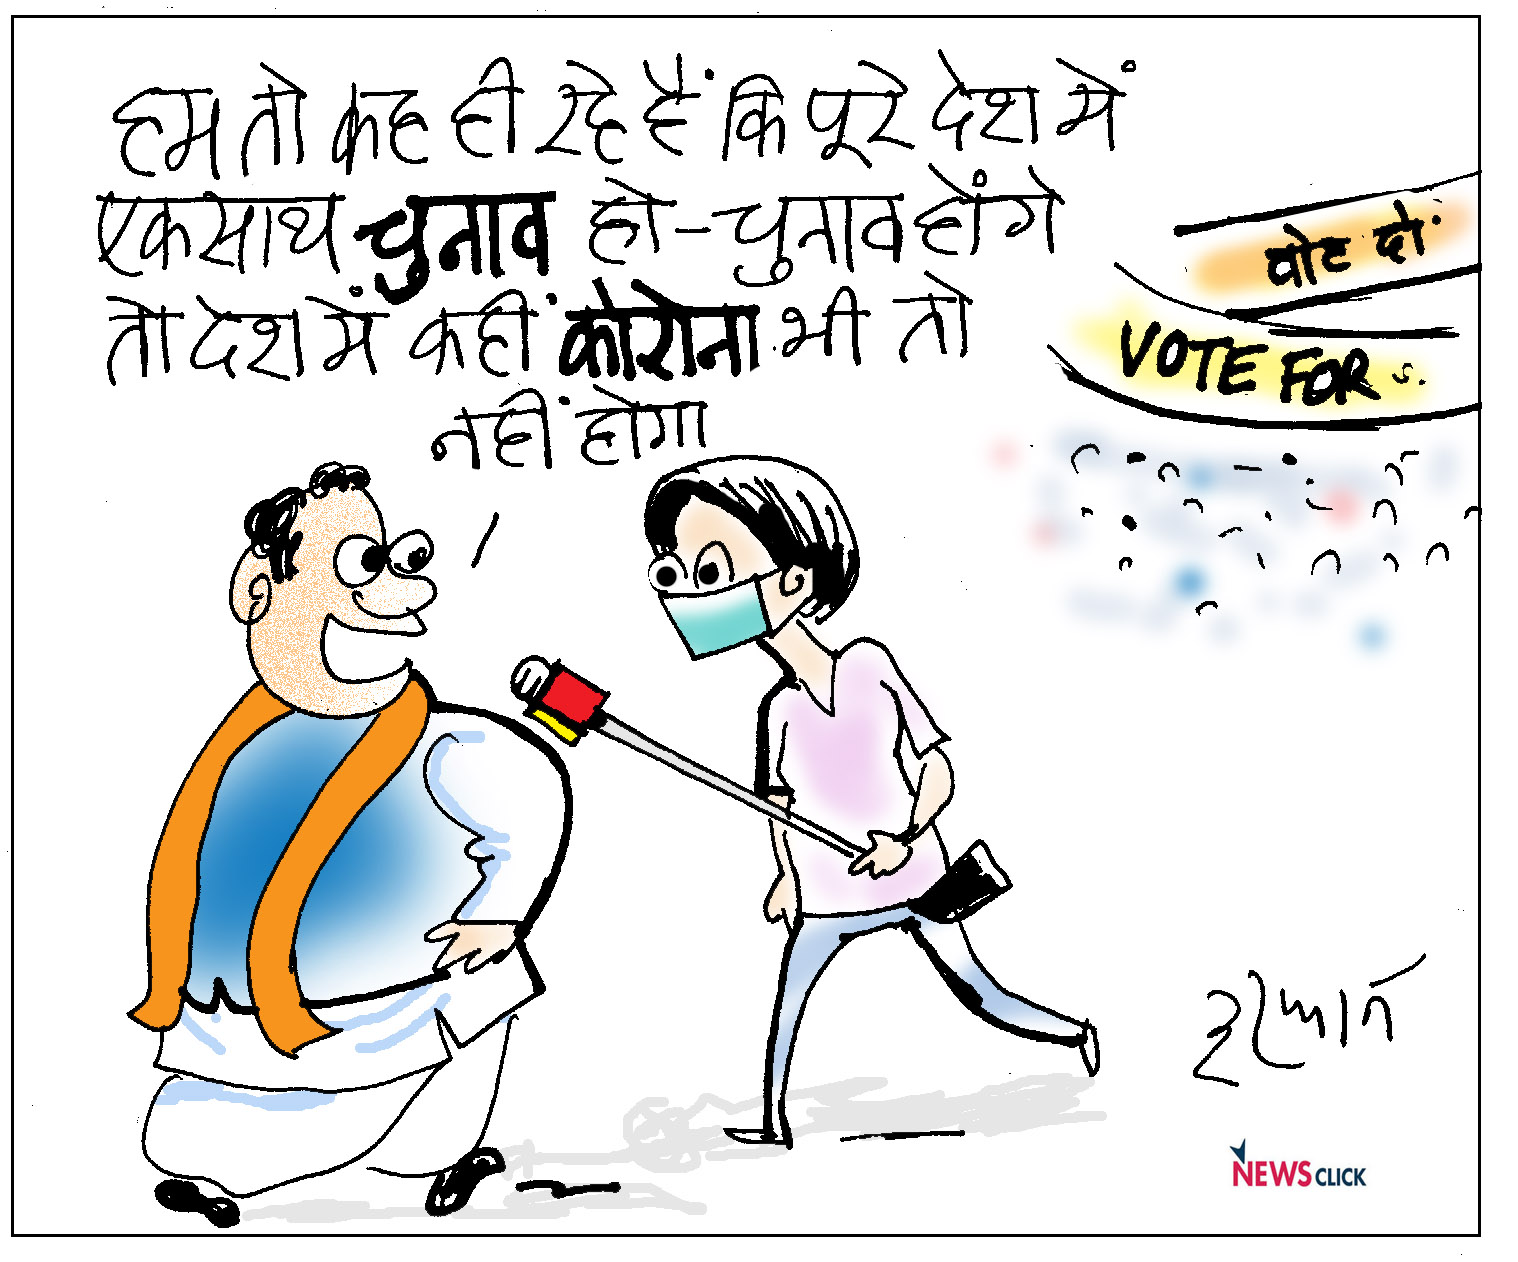 हम तो कह ही रहे हैं कि पूरे देश में
एकसाथ चुनाव हो - चुनाव होंगे
तो देश में कहीं कोरोना भी तो
नहीं होगा
वोट दो.
VOTE FOR
इरफान
NEWSCLICK